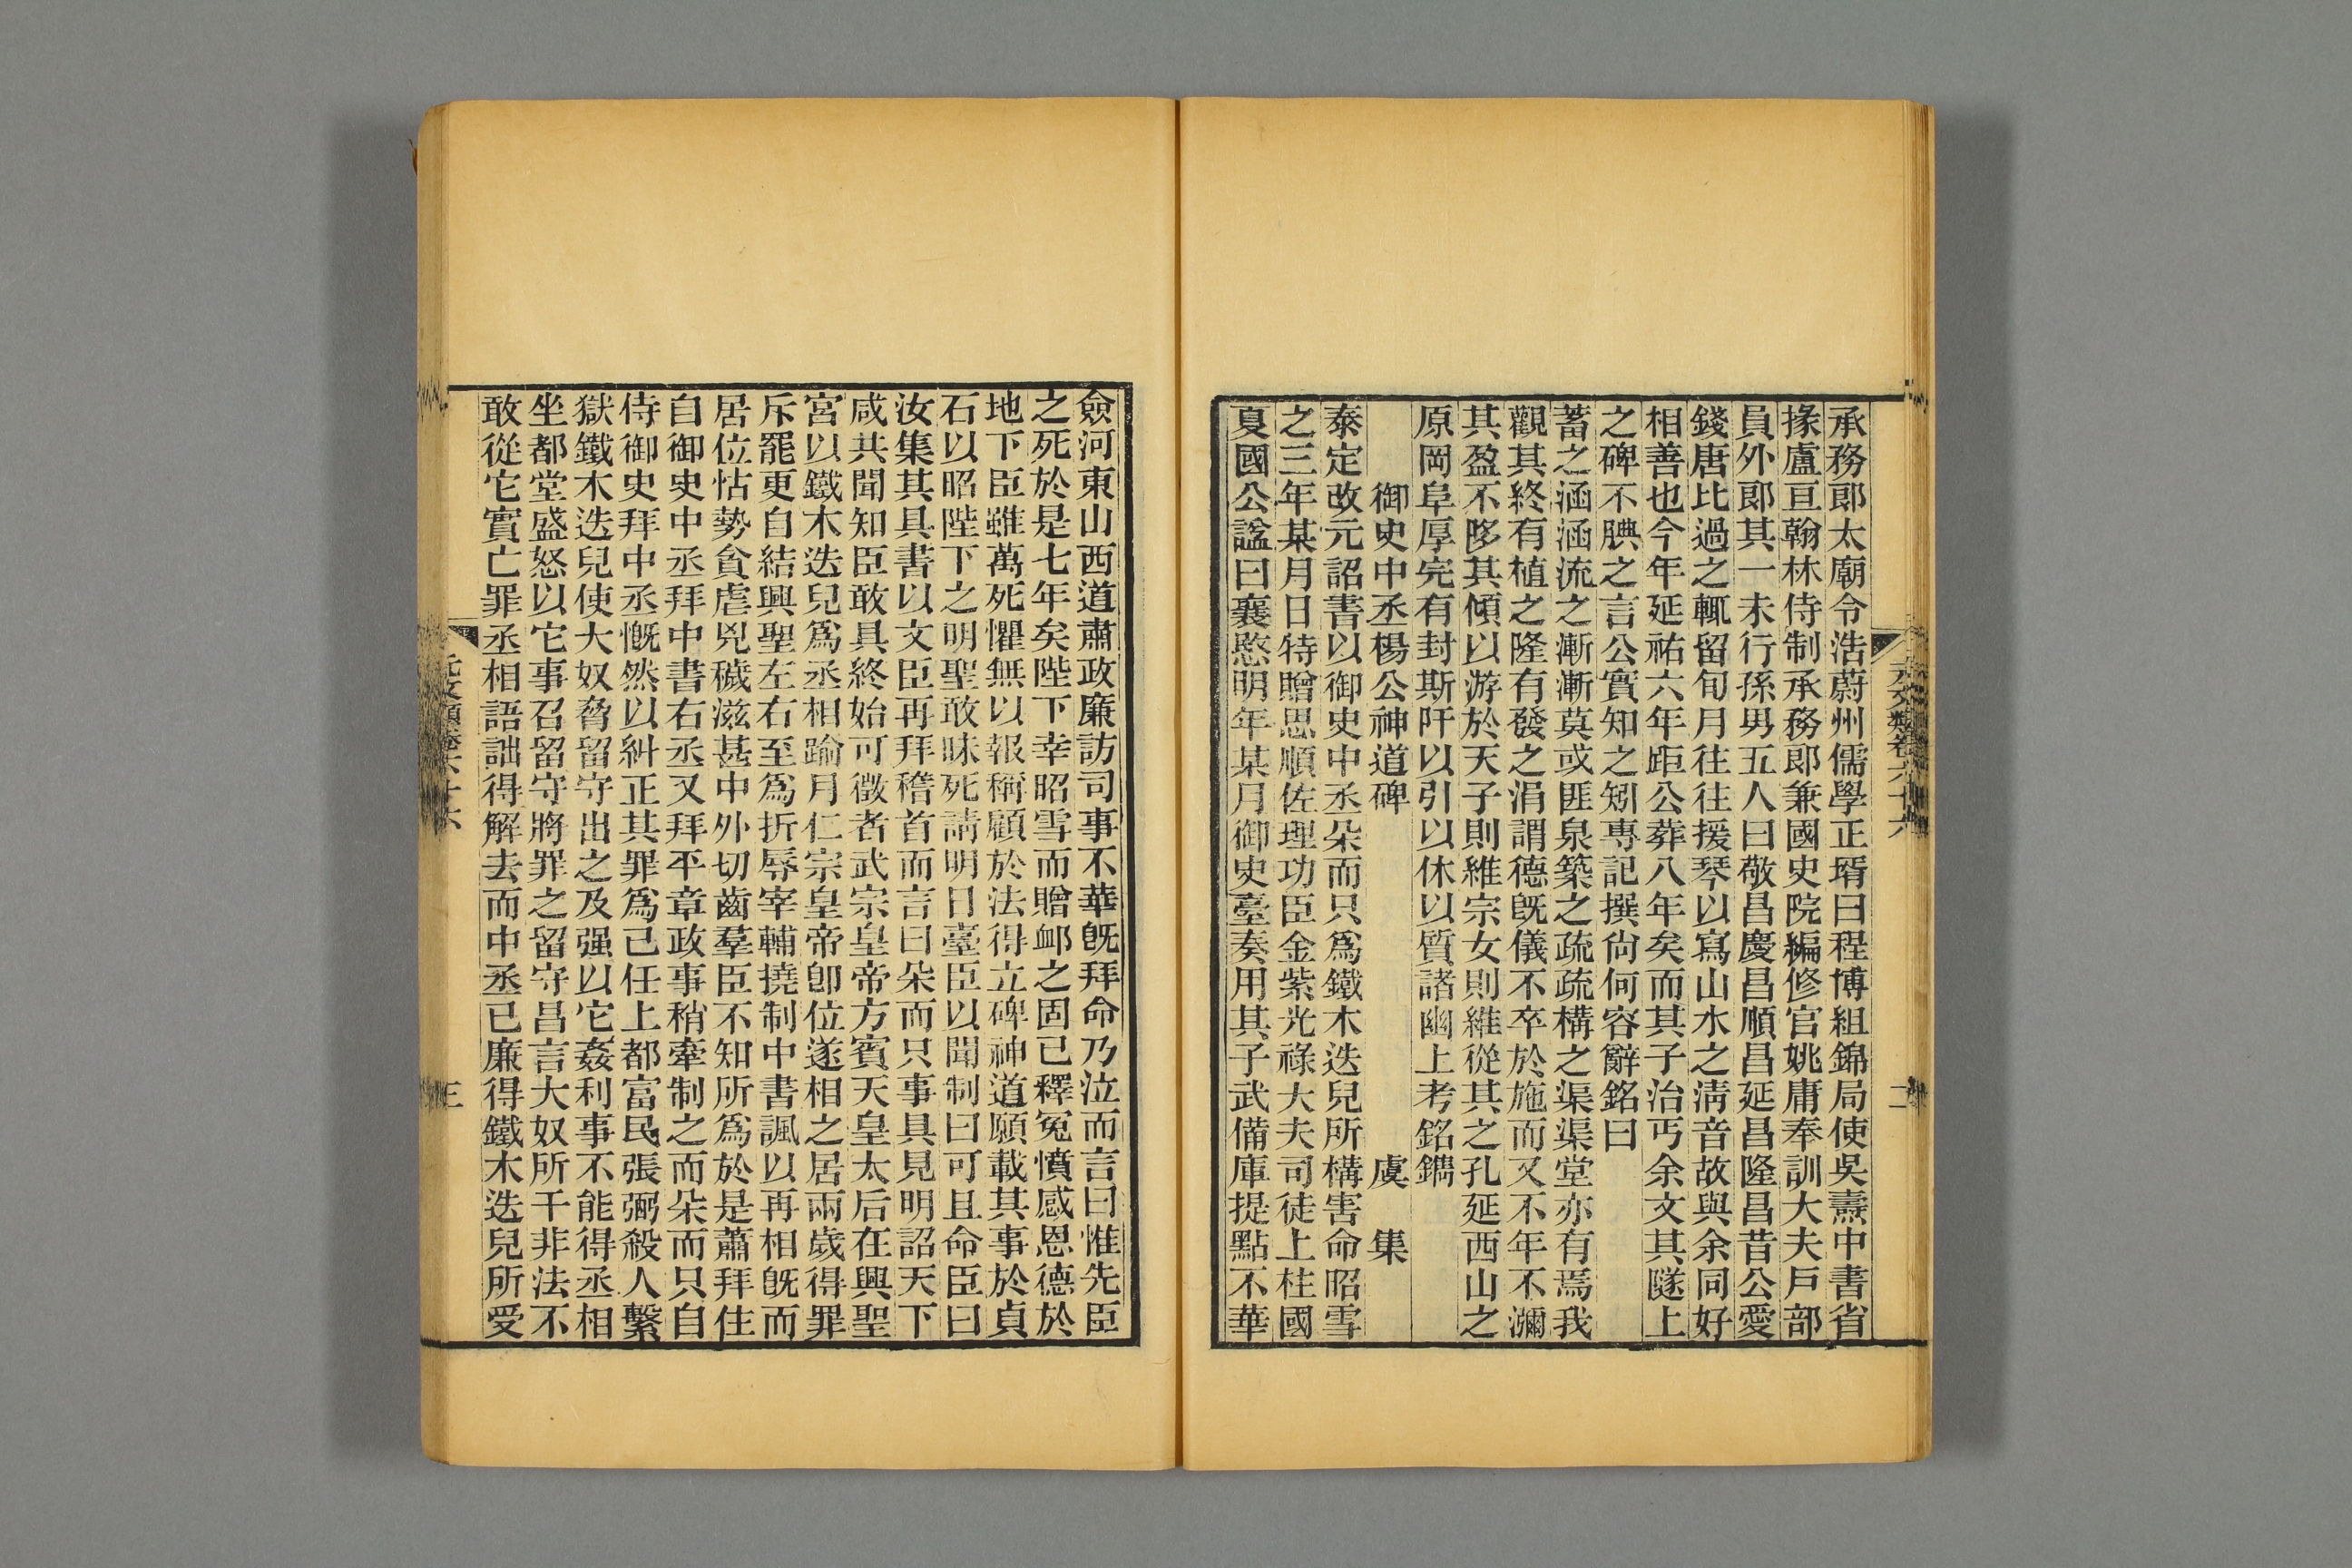 元文類卷六十六
二
承務郎太廟令浩蔚州儒學正壻曰程博組錦局使吳燾中書省
掾盧亘翰林侍制承務郎兼國史院編修官姚庸奉訓大夫戸部
員外郎其一未行孫男五人曰敬昌慶昌順昌延昌隆昌昔公愛
錢唐比過之輒留旬月往往援琴以寫山水之淸音故與余同好
相善也今年延祐六年距公葬八年矣而其子治丐余文其隧上
之碑不腆之言公實知之矧專記撰尙何容辭銘曰
蓄之涵涵流之漸漸莫或匪泉築之疏疏構之渠渠堂亦有焉我
觀其終有植之隆有發之涓謂德旣儀不卒於施而又不年不瀰
其盈不眵其傾以游於天子則維宗女則維從其之孔延西山之
原岡阜厚完有封斯阡以引以休以質諸幽上考銘鐫
御史中丞楊公神道碑 虞集
泰定改元詔書以御史中丞朵而只爲鐵木迭兒所構害命昭雪
之三年某月日特贈思順佐理功臣金紫光祿大夫司徒上柱國
夏國公諡曰襄愍明年某月御史臺奏用其子武備庫提點不華
僉河東山西道肅政廉訪司事不華旣拜命乃泣而言曰惟先臣
之死於是七年矣陛下幸昭雪而贈卹之固已釋冤憤感恩德於
地下臣雖萬死懼無以報稱顧於法得立碑神道願載其事於貞
石以昭陛下之明聖敢昧死請明日臺臣以聞制曰可且命臣曰
汝集其具書以文臣再拜稽首而言曰朵而只事具見明詔天下
咸共聞知臣敢具終始可徵者武宗皇帝方賓天皇太后在興聖
宮以鐵木迭兒爲丞相踰月仁宗皇帝卽位遂相之居兩歲得罪
斥罷更自結興聖左右至爲折辱宰輔撓制中書諷以再相旣而
居位怙勢貪虐兇穢滋甚中外切齒羣臣不知所爲於是蕭拜住
自御史中丞拜中書右丞又拜平章政事稍牽制之而朵而只自
侍御史拜中丞慨然以糾正其罪爲己任上都富民張弼殺人繫
獄鐵木迭兒使大奴脅留守出之及强以它姦利事不能得丞相
坐都堂盛怒以它事召留守將罪之留守昌言大奴所干非法不
敢從它實亡罪丞相語詘得解去而中丞已廉得鐵木迭兒所受
元文類卷六十六
三